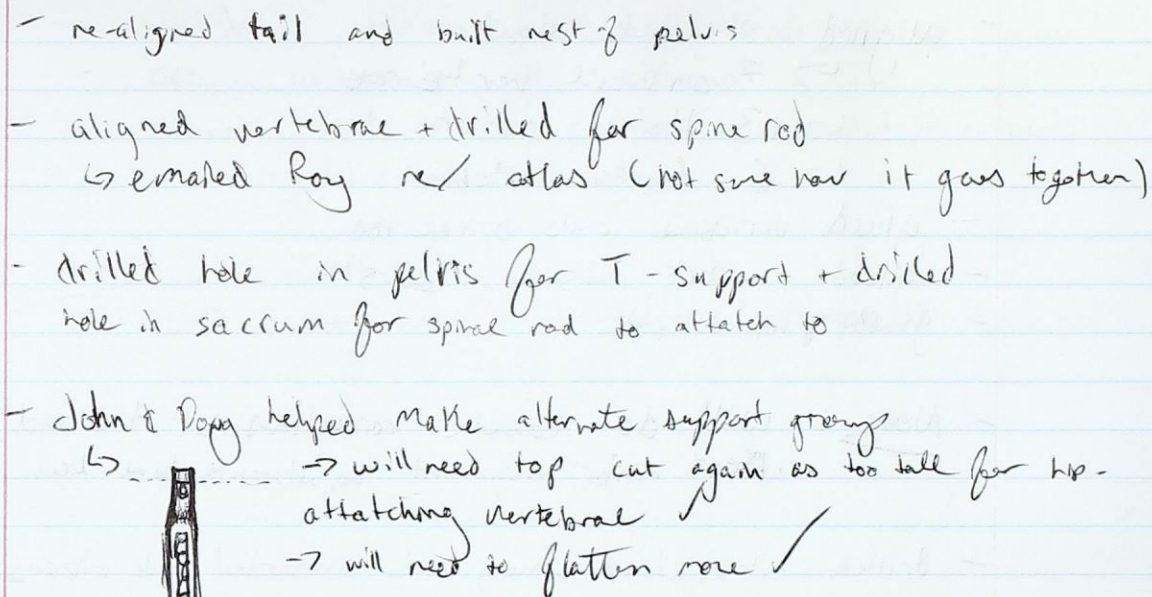 - re-aligned tail and built rest of pelvis
- aligned vertebrae + drilled for spine rod
↳ emailed Roy re/ atlas (not sure how it goes together)
- drilled hole in pelvis for T-support + drilled
hole in sacrum for spinal rod to attatch to
- John & Doug helped make alternate support
↳ → will need top cut again as too tall for hip-
attatching vertebrae ✓
→ will need to flatten more ✓